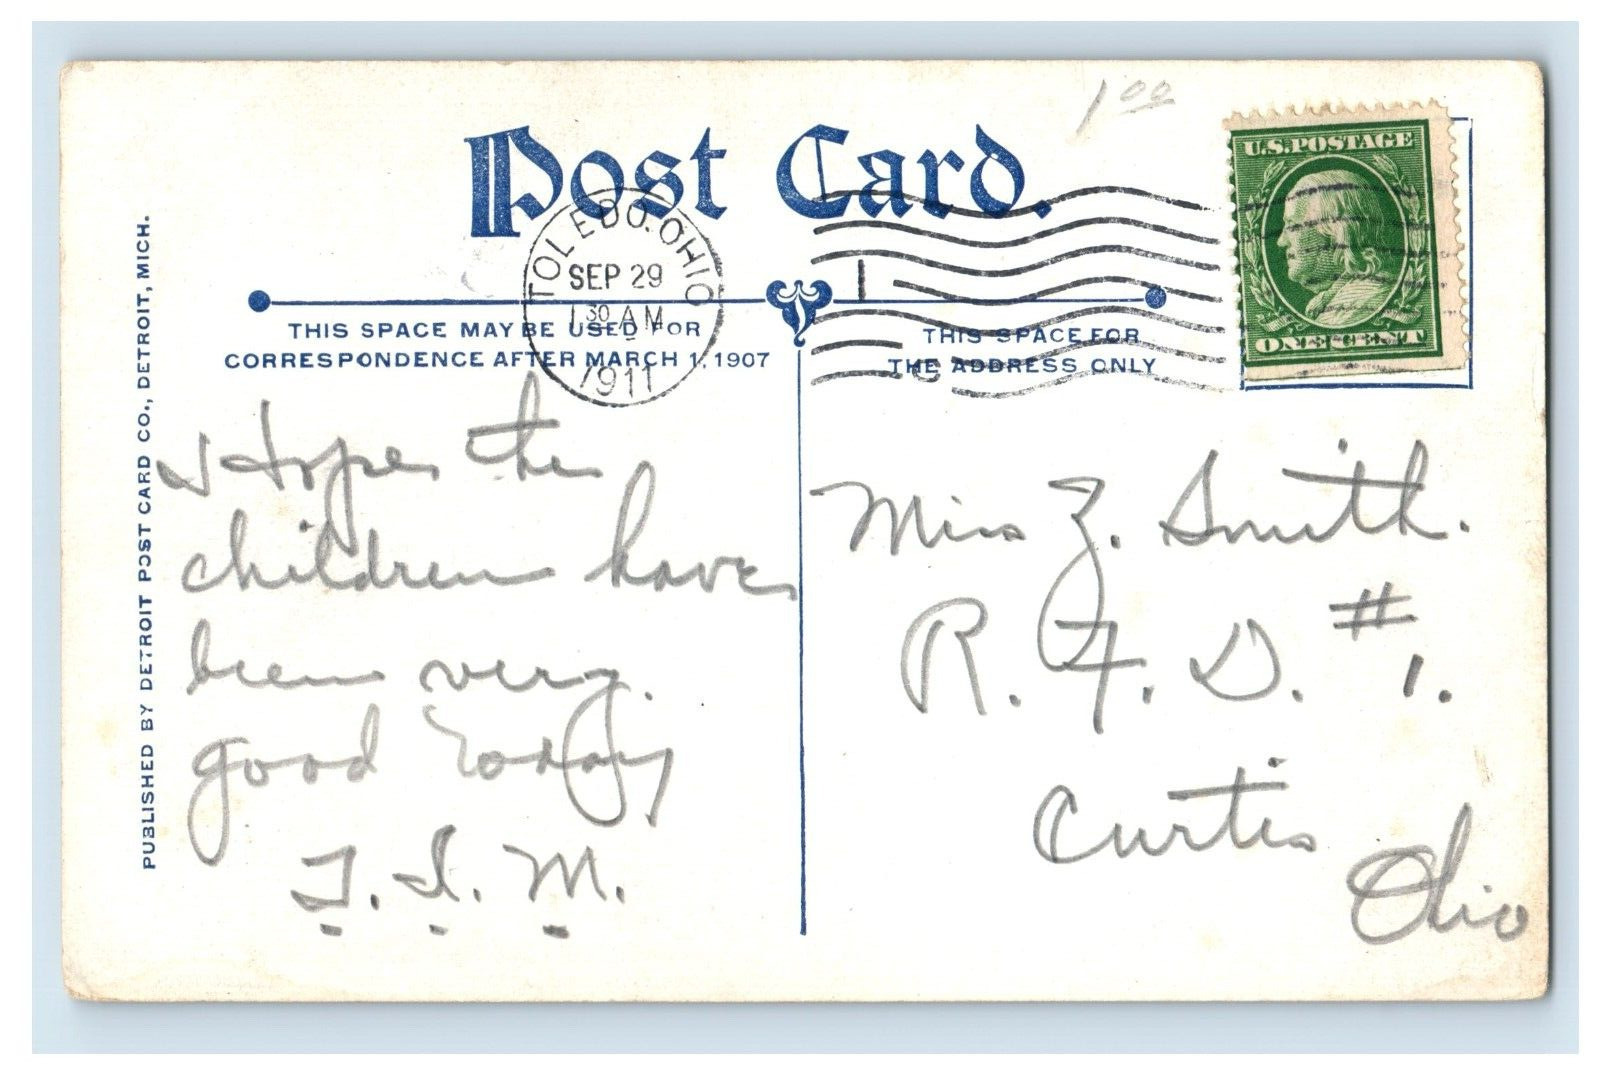 1 00
Post Card.
U.S. POSTAGE
ONE CENT
TOLEDO. OHIO
SEP 29
1 30 AM
1911
THIS SPACE MAY BE USED FOR
CORRESPONDENCE AFTER MARCH 1, 1907
THIS SPACE FOR
THE ADDRESS ONLY
PUBLISHED BY DETROIT POST CARD CO., DETROIT, MICH.
I Hope the
children have
been very.
good today
T. I. M.
Miss Z. Smith.
R. F. D. #1.
Curtis
Ohio